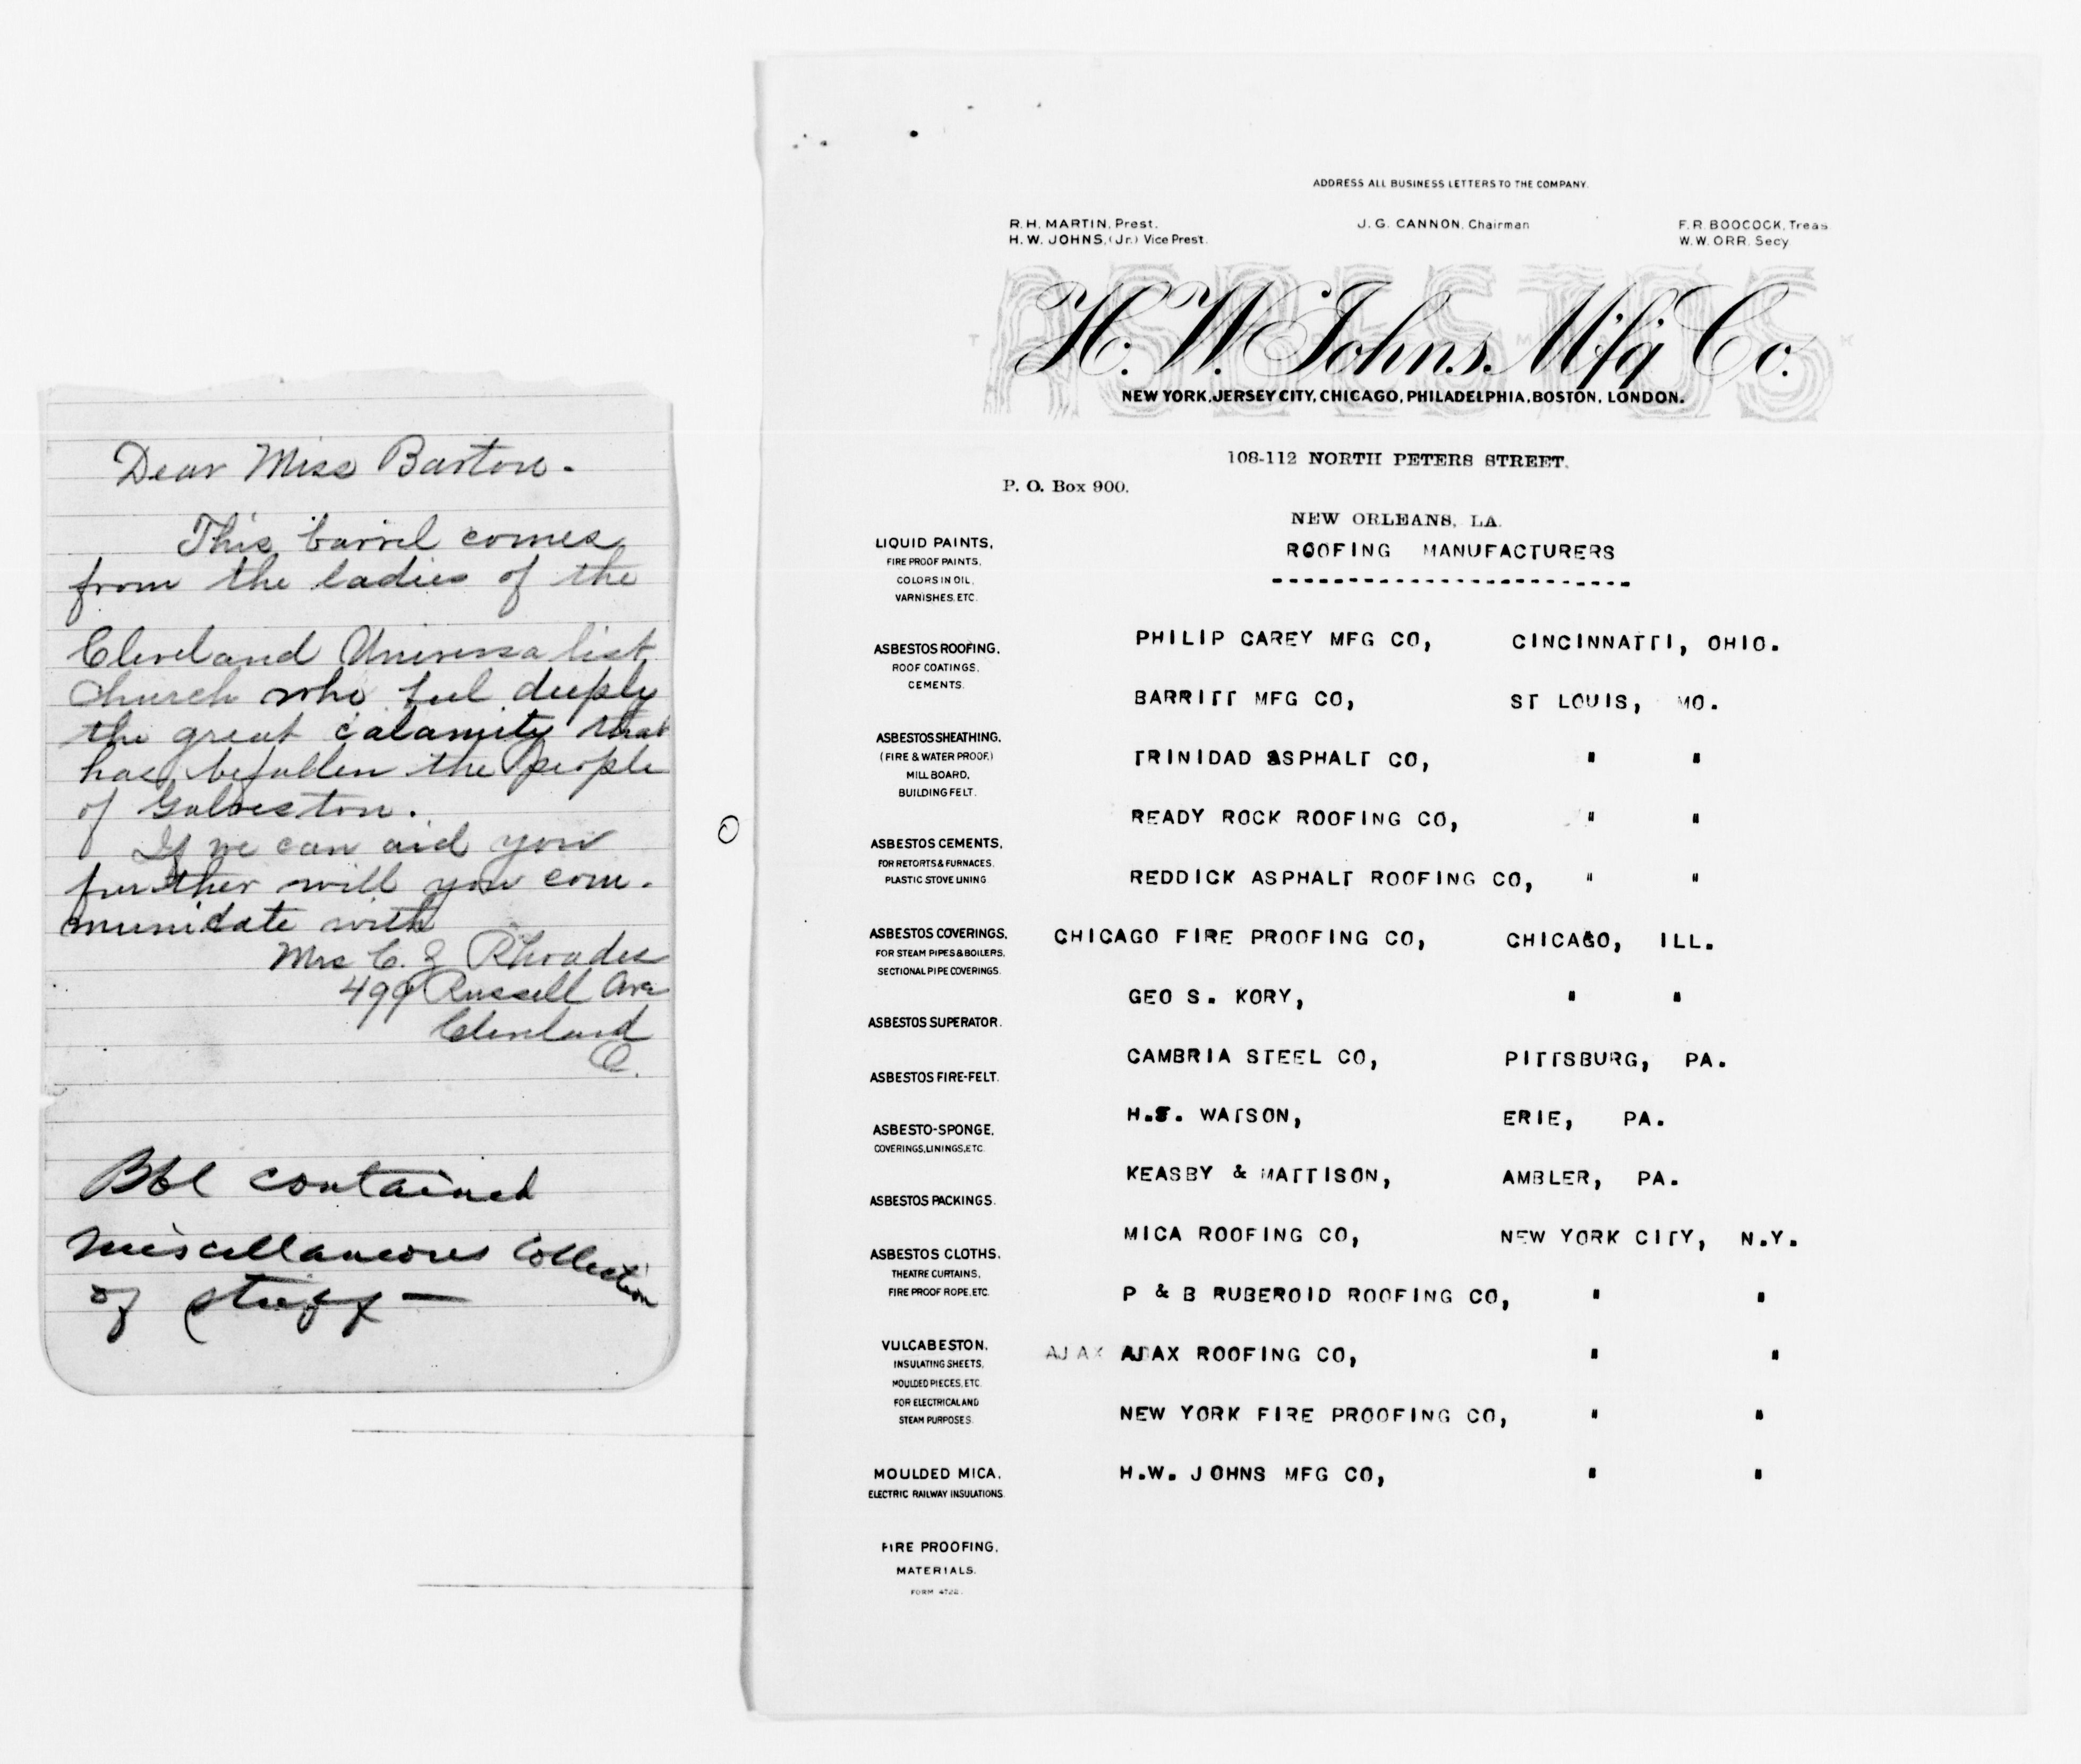 Dear Miss Barton.
This barrel comes
from the ladies of the
Cleveland Universalist
Church who feel deeply
the great calamity that
has befallen the people
of Galveston.
If we can aid you
further will you com-
municate with
Mrs C. E Rhoades
499 Russell Ave
Cleveland
O.
Bbl contained
miscellaneous Collection
of stuff —
ADDRESS ALL BUSINESS LETTERS TO THE COMPANY.
R. H. MARTIN, Prest. J. G. CANNON, Chairman F. R. BOOCOCK, Treas
H. W. JOHNS, (Jr.) Vice Prest. W. W. ORR, Secy
ASBESTOS
H. W. Johns Mfg Co.
NEW YORK, JERSEY CITY, CHICAGO, PHILADELPHIA, BOSTON, LONDON.
108-112 NORTH PETERS STREET.
P. O. Box 900.
NEW ORLEANS, LA.
ROOFING MANUFACTURERS
-----------------------
PHILIP CAREY MFG CO, CINCINNATTI, OHIO.
BARRITT MFG CO, ST LOUIS, MO.
TRINIDAD ASPHALT CO, " "
READY ROCK ROOFING CO, " "
REDDICK ASPHALT ROOFING CO, " "
CHICAGO FIRE PROOFING CO, CHICAGO, ILL.
GEO S. KORY, " "
CAMBRIA STEEL CO, PITTSBURG, PA.
H.S. WATSON, ERIE, PA.
KEASBY & MATTISON, AMBLER, PA.
MICA ROOFING CO, NEW YORK CITY, N.Y.
P & B RUBEROID ROOFING CO, " "
AJAX AJAX ROOFING CO, " "
NEW YORK FIRE PROOFING CO, " "
H.W. JOHNS MFG CO, " "
LIQUID PAINTS,
FIRE PROOF PAINTS,
COLORS IN OIL,
VARNISHES, ETC.
ASBESTOS ROOFING,
ROOF COATINGS,
CEMENTS.
ASBESTOS SHEATHING,
(FIRE & WATER PROOF,)
MILL BOARD,
BUILDING FELT.
ASBESTOS CEMENTS,
FOR RETORTS & FURNACES,
PLASTIC STOVE LINING
ASBESTOS COVERINGS,
FOR STEAM PIPES & BOILERS,
SECTIONAL PIPE COVERINGS.
ASBESTOS SUPERATOR.
ASBESTOS FIRE-FELT.
ASBESTO-SPONGE,
COVERINGS, LININGS, ETC
ASBESTOS PACKINGS.
ASBESTOS CLOTHS,
THEATRE CURTAINS,
FIRE PROOF ROPE, ETC.
VULCABESTON,
INSULATING SHEETS,
MOULDED PIECES, ETC.
FOR ELECTRICAL AND
STEAM PURPOSES.
MOULDED MICA,
ELECTRIC RAILWAY INSULATIONS.
FIRE PROOFING,
MATERIALS.
FORM 4722.